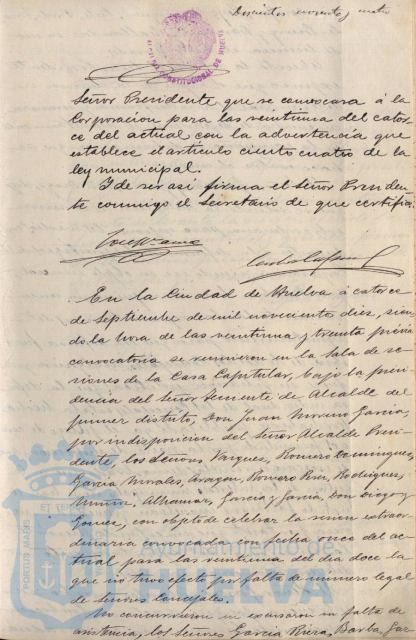 Doscientos noventa y cuatro
ALCALDIA CONSTITUCIONAL DE HUELVA
Señor Presidente que se convocara á la
Corporacion para las veintiuna del cator-
ce del actual con la advertencia que
establece el articulo ciento cuatro de la
ley municipal.
Y de ser asi firma el Señor Presiden-
te conmigo el Secretario de que certifico.
En la Ciudad de Huelva á catorce
de Septiembre de mil novecientos diez, sien-
do la hora de las veintiuna y treinta previa
convocatoria se reunieron en la Sala de se-
siones de la Casa Capitular, bajo la presi-
dencia del Señor Teniente de Alcalde del
primer distrito, Don Juan Moreno Garcia,
por indisposicion del Señor Alcalde Presi-
dente, los Señores Vazquez, Romero Dominguez,
Garcia Morales, Aragon, Romero Perez, Rodriguez,
Muñoz, Alhamar, Garcia y Garcia, Don Diego y
Gomez, con objeto de celebrar la sesion extraor-
dinaria convocada con fecha once del ac-
tual para las veintiuna del dia doce la
que no tuvo efecto por falta de número legal
de Señores Concejales.
No concurrieron ni excusaron su falta de
asistencia, los Señores Garcia Barba, Gar-
PORTUS MARIS
Ayuntamiento de
HUELVA